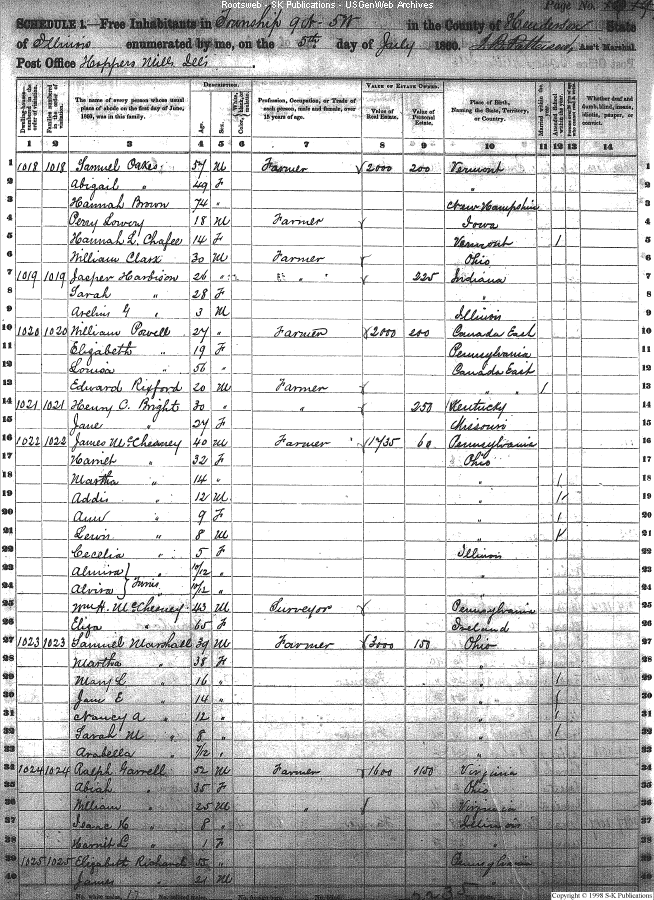 Rootsweb - SK Publications - USGenWeb Archives
Page No.
SCHEDULE 1.—Free Inhabitants in Township 9 N - 5 W in the County of Henderson State
of Illinois enumerated by me, on the 5th day of July 1860. Ass't Marshal.
Post Office Hoppers Mills Ills
Dwelling-houses—numbered in the order of visitation. Families numbered in the order of visitation. The name of every person whose usual place of abode on the first day of June, 1860, was in this family. DESCRIPTION. Age. Sex. Color, Profession, Occupation, or Trade of each person, male and female, over 15 years of age. VALUE OF ESTATE OWNED. Value of Real Estate. Value of Personal Estate. Place of Birth, Naming the State, Territory, or Country. Married within the year. Attended School within the year. Whether deaf and dumb, blind, insane, idiotic, pauper, or convict.
1 2 3 4 5 6 7 8 9 10 11 12 13 14
1 1018 1018 Samuel Oakes 57 M Farmer 2000 200 Vermont 1
2 Abigail " 49 F " 2
3 Hannah Brown 74 " New Hampshire 3
4 Perry Lowery 18 M Farmer Iowa 4
5 Hannah L. Chafee 14 F Vermont 1 5
6 William Clark 30 M Farmer Ohio 6
7 1019 1019 Jasper Harbison 26 " " 225 Indiana 7
8 Sarah " 28 F " 8
9 G " 3 M Illinois 9
10 1020 1020 William Powell 27 " Farmer 2000 200 Canada East 10
11 Elizabeth " 19 F Pennsylvania 11
12 Louisa " 56 " Canada East 12
13 Edward Rixford 20 M Farmer " " 1 13
14 1021 1021 Henry C. Bright 30 " " 250 Kentucky 14
15 Jane " 27 F Missouri 15
16 1022 1022 James McChesney 40 M Farmer 1735 60 Pennsylvania 16
17 Harriet " 32 F Ohio 17
18 Martha " 14 " " 1 18
19 Addis " 12 M " 1 19
20 Ann " 9 F " 1 20
21 Lewis " 8 M " 1 21
22 Cecelia " 5 F Illinois 22
23 Almira } Twins 10/12 " " 23
24 Alvira } " 10/12 " " 24
25 Wm H. McChesney 43 M Surveyor Pennsylvania 25
26 Eliza " 65 F Ireland 26
27 1023 1023 Samuel Marshall 39 M Farmer 3000 150 Ohio 27
28 Martha " 38 F " 28
29 Mary L " 16 " " 1 29
30 Jane E " 14 " " 1 30
31 Nancy A " 12 " " 1 31
32 Sarah M " 8 " " 1 32
33 Arabella " 7/12 " " 33
34 1024 1024 Ralph Garrell 52 M Farmer 1600 1150 Virginia 34
35 Abiah " 35 F Ohio 35
36 William " 25 M " Virginia 36
37 Isaac H " 8 " Illinois 37
38 Harriet L " 1 F " 38
39 1025 1025 Elizabeth Richards 55 " Pennsylvania 39
40 James " 21 M " 40
No. white males, 17
Copyright © 1998 S-K Publications